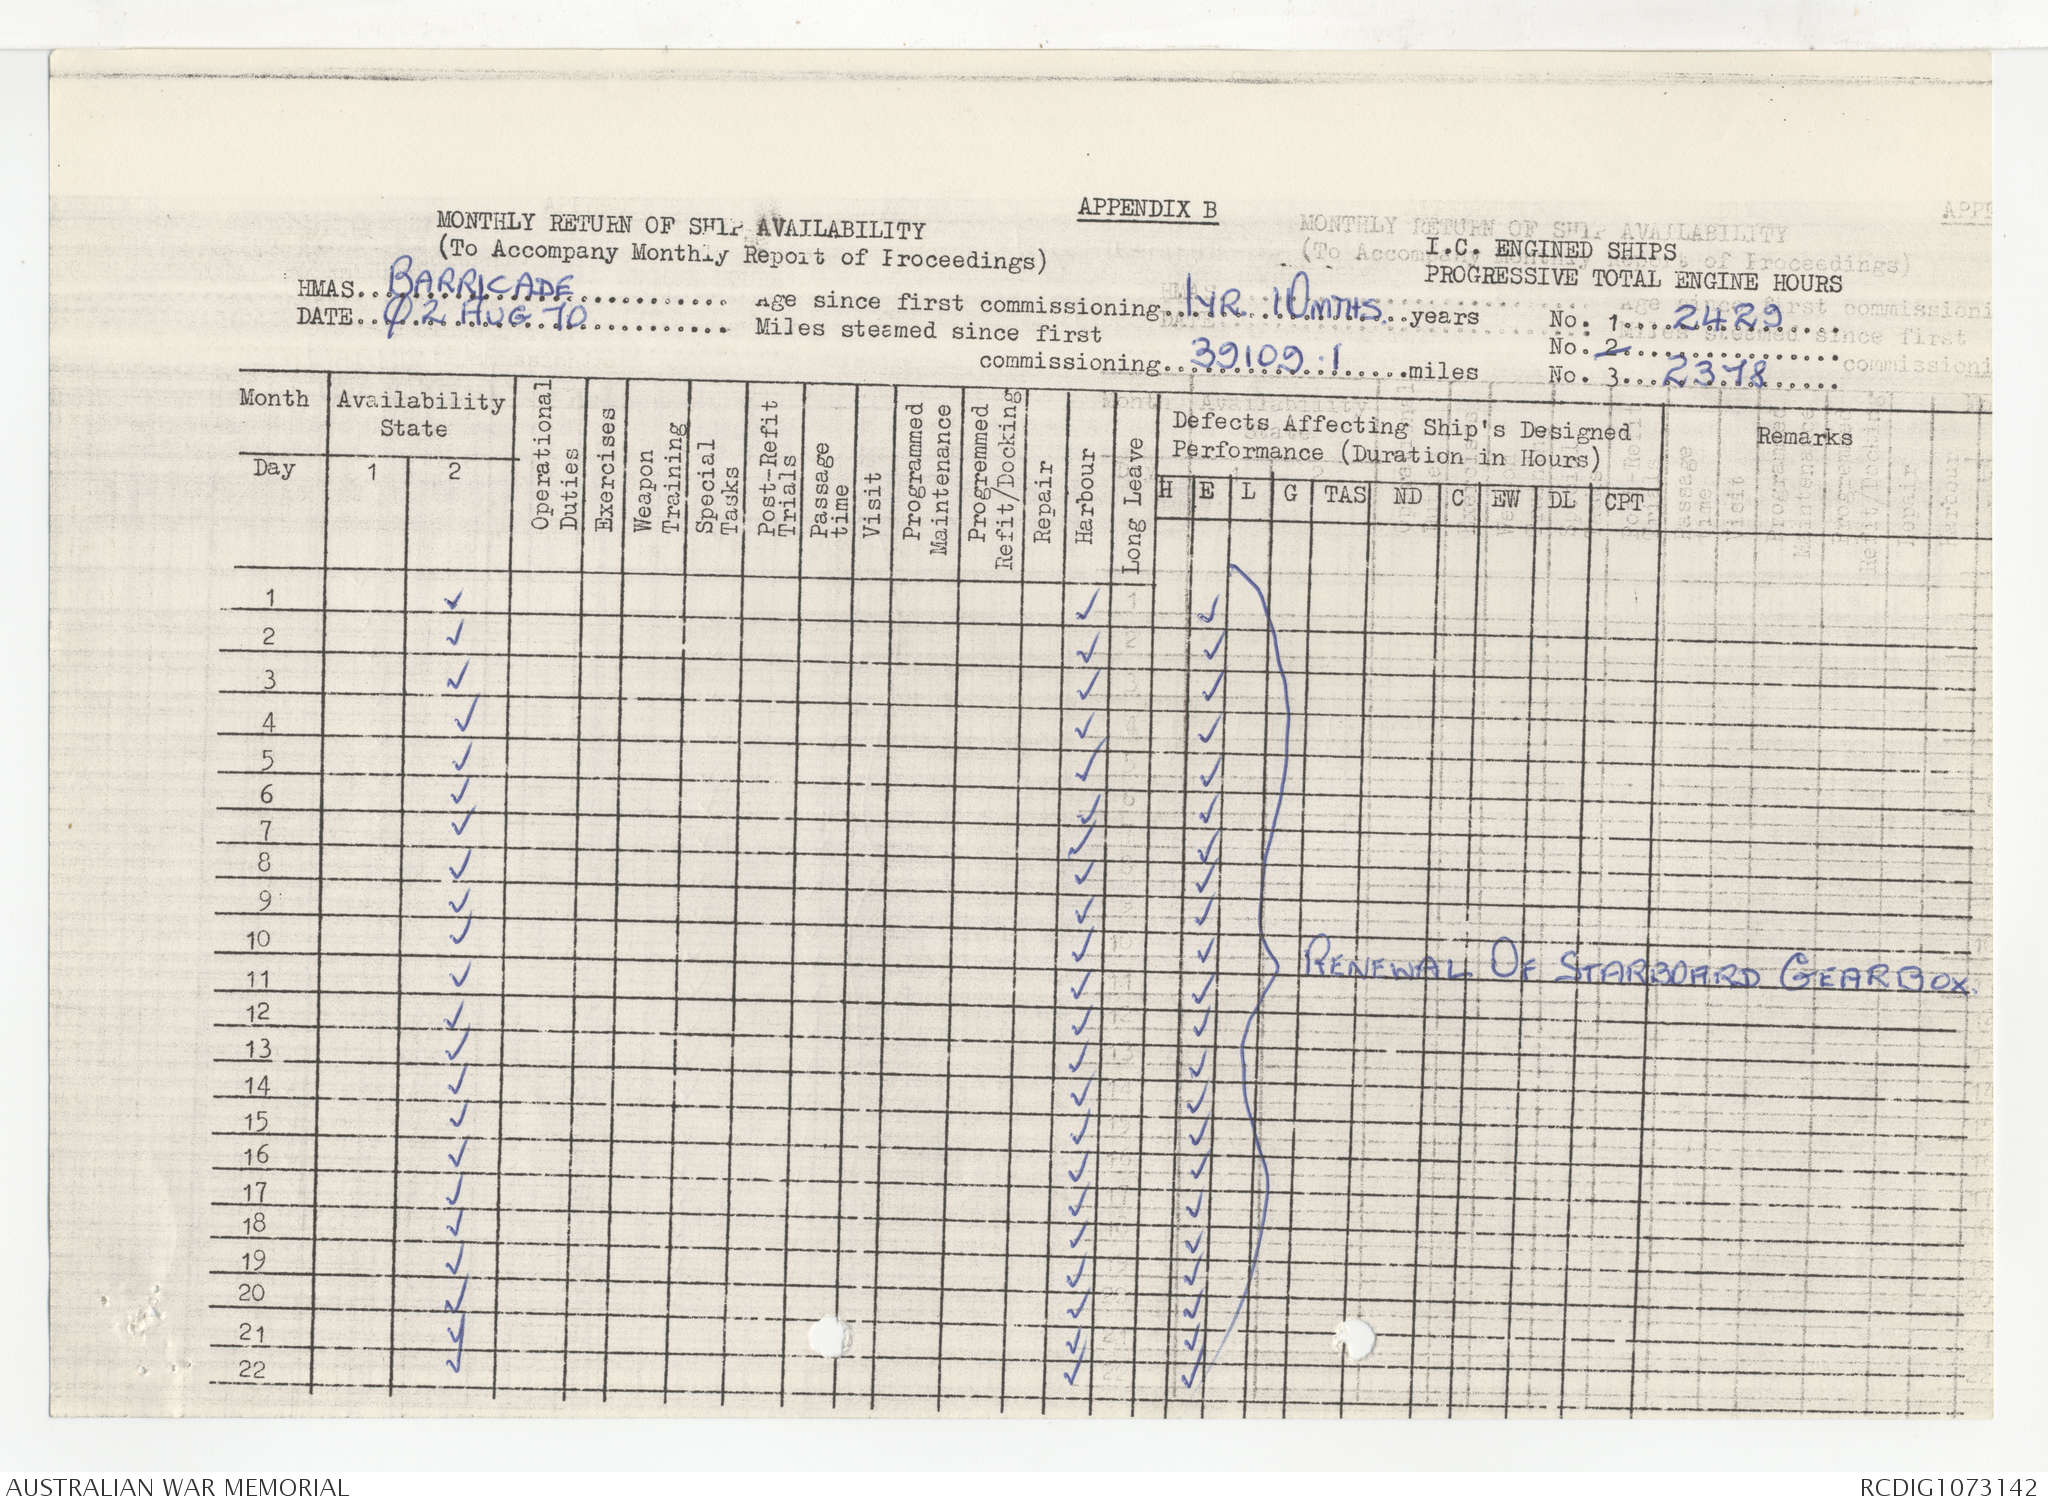 APPENDIX B
MONTHLY RETURN OF SHIP AVAILABILITY
(To Accompany Monthly Report of Proceedings)
I.C. ENGINED SHIPS
PROGRESSIVE TOTAL ENGINE HOURS
HMAS..BARRICADE.......... Age since first commissioning..1YR 10MTHS..years No. 1....2429....
DATE..02 AUG 70.......... Miles steamed since first No. 2................
commissioning..39109.1......miles No. 3...2378......
Month Availability State Operational Duties Exercises Weapon Training Special Tasks Post-Refit Trials Passage time Visit Programmed Maintenance Progremmed Refit/Docking Repair Harbour Long Leave Defects Affecting Ship's Designed Performance (Duration in Hours) Remarks
Day 1 2 H E L G TAS ND C EW DL CPT
1 ✓ ✓ ✓
2 ✓ ✓ ✓
3 ✓ ✓ ✓
4 ✓ ✓ ✓
5 ✓ ✓ ✓
6 ✓ ✓ ✓
7 ✓ ✓ ✓
8 ✓ ✓ ✓
9 ✓ ✓ ✓
10 ✓ ✓ ✓ RENEWAL OF STARBOARD GEARBOX.
11 ✓ ✓ ✓
12 ✓ ✓ ✓
13 ✓ ✓ ✓
14 ✓ ✓ ✓
15 ✓ ✓ ✓
16 ✓ ✓ ✓
17 ✓ ✓ ✓
18 ✓ ✓ ✓
19 ✓ ✓ ✓
20 ✓ ✓ ✓
21 ✓ ✓ ✓
22 ✓ ✓ ✓
AUSTRALIAN WAR MEMORIAL RCDIG1073142